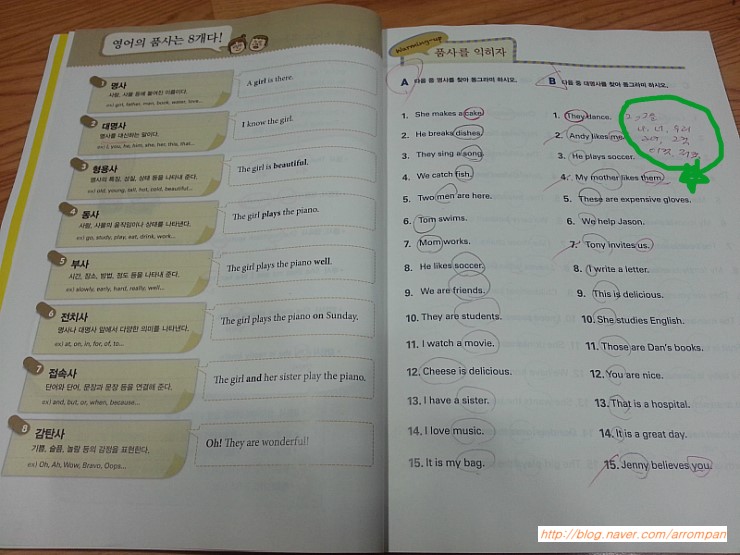 영어의 품사는 8개다!
1 명사
사람, 사물 등에 붙여진 이름이다.
ex) girl, father, man, book, water, love...
A girl is there.
2 대명사
명사를 대신하는 말이다.
ex) I, you, he, him, she, her, this, that...
I know the girl.
3 형용사
명사의 특징, 성질, 상태 등을 나타내 준다.
ex) old, young, tall, hot, cold, beautiful...
The girl is beautiful.
4 동사
사람, 사물의 움직임이나 상태를 나타낸다.
ex) go, study, play, eat, drink, work...
The girl plays the piano.
5 부사
시간, 장소, 방법, 정도 등을 나타내 준다.
ex) slowly, early, hard, really, well...
The girl plays the piano well.
6 전치사
명사나 대명사 앞에서 다양한 의미를 나타낸다.
ex) at, on, in, for, of, to...
The girl plays the piano on Sunday.
7 접속사
단어와 단어, 문장과 문장 등을 연결해 준다.
ex) and, but, or, when, because...
The girl and her sister play the piano.
8 감탄사
기쁨, 슬픔, 놀람 등의 감정을 표현한다.
ex) Oh, Ah, Wow, Bravo, Oops...
Oh! They are wonderful!
Warming-up
품사를 익히자
A 다음 중 명사를 찾아 동그라미 하시오.
1. She makes a cake.
2. He breaks dishes.
3. They sing a song.
4. We catch fish.
5. Two men are here.
6. Tom swims.
7. Mom works.
8. He likes soccer.
9. We are friends.
10. They are students.
11. I watch a movie.
12. Cheese is delicious.
13. I have a sister.
14. I love music.
15. It is my bag.
B 다음 중 대명사를 찾아 동그라미 하시오.
1. They dance.
2. Andy likes me.
3. He plays soccer.
4. My mother likes them.
5. These are expensive gloves.
6. We help Jason.
7. Tony invites us.
8. I write a letter.
9. This is delicious.
10. She studies English.
11. Those are Dan's books.
12. You are nice.
13. That is a hospital.
14. It is a great day.
15. Jenny believes you.
나, 너, 우리
http://blog.naver.com/arrompan